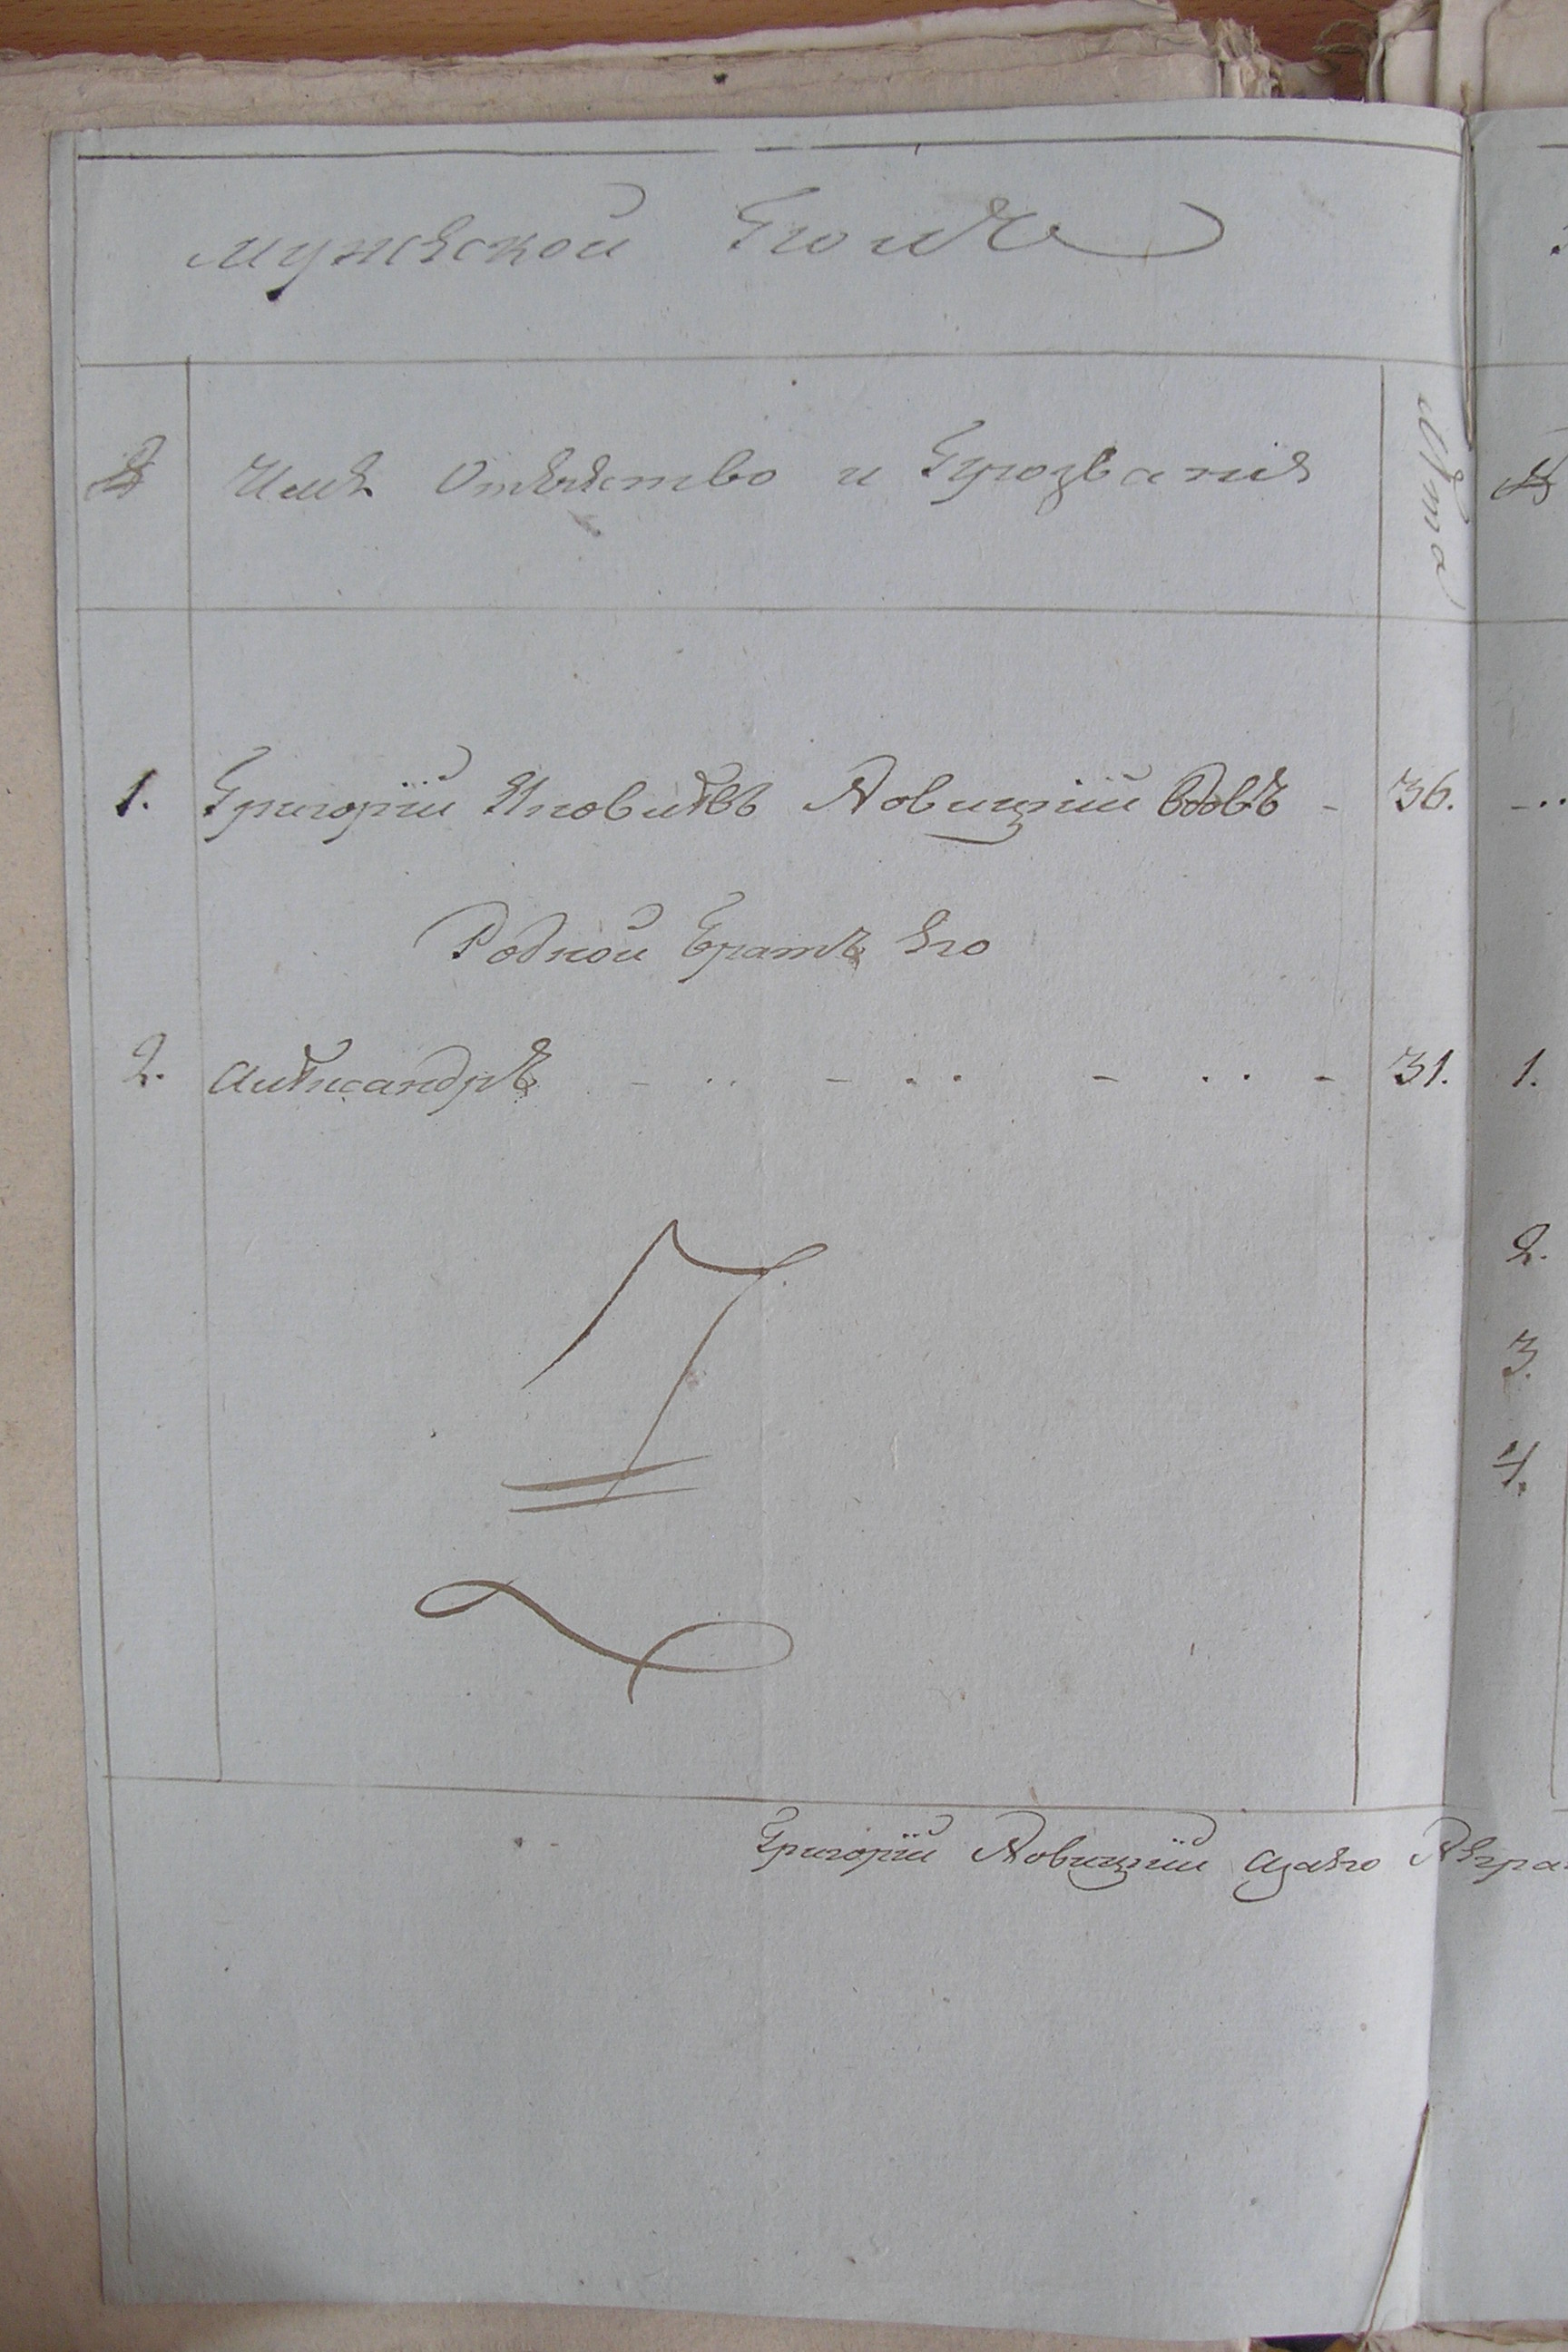 мужеской полъ
№ Имя Отечество и Прозвание Лѣта №
1. Григорій Яковлевъ Новицкій вдовъ - 36. - ..
Родной братъ Его
2. Александръ - .. - .. - .. - 31. 1.
2.
3.
4.
Григорій Новицкій